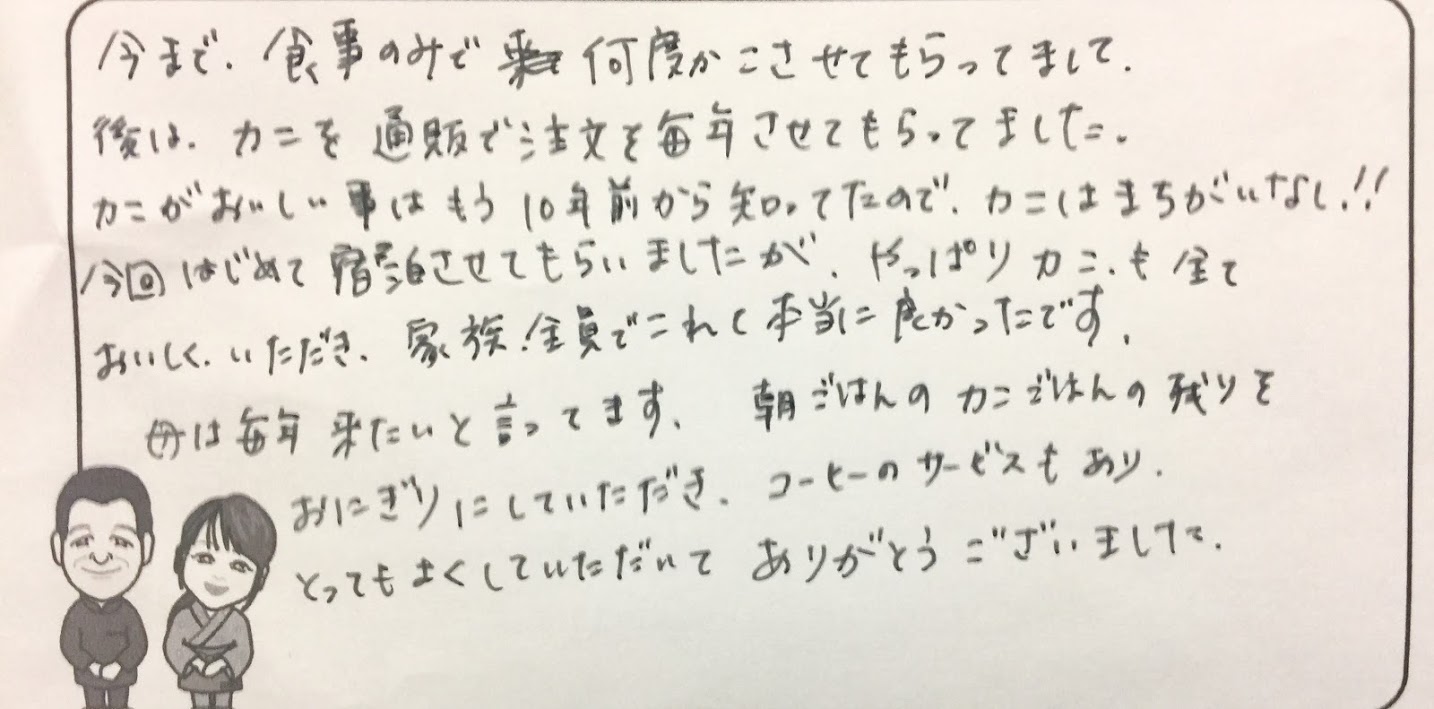 今まで、食事のみで 何度かこさせてもらってまして、
後は、カニを通販で注文を毎年させてもらってました。
カニがおいしい事はもう10年前から知ってたので、カニはまちがいなし!!
今回はじめて宿泊させてもらいましたが、やっぱりカニ、も全て
おいしく、いただき、家族全員でこれて本当に良かったです。
母は毎年来たいと言ってます。 朝ごはんのカニごはんの残りを
おにぎりにしていただき、コーヒーのサービスもあり、
とってもよくしていただいて ありがとうございました。